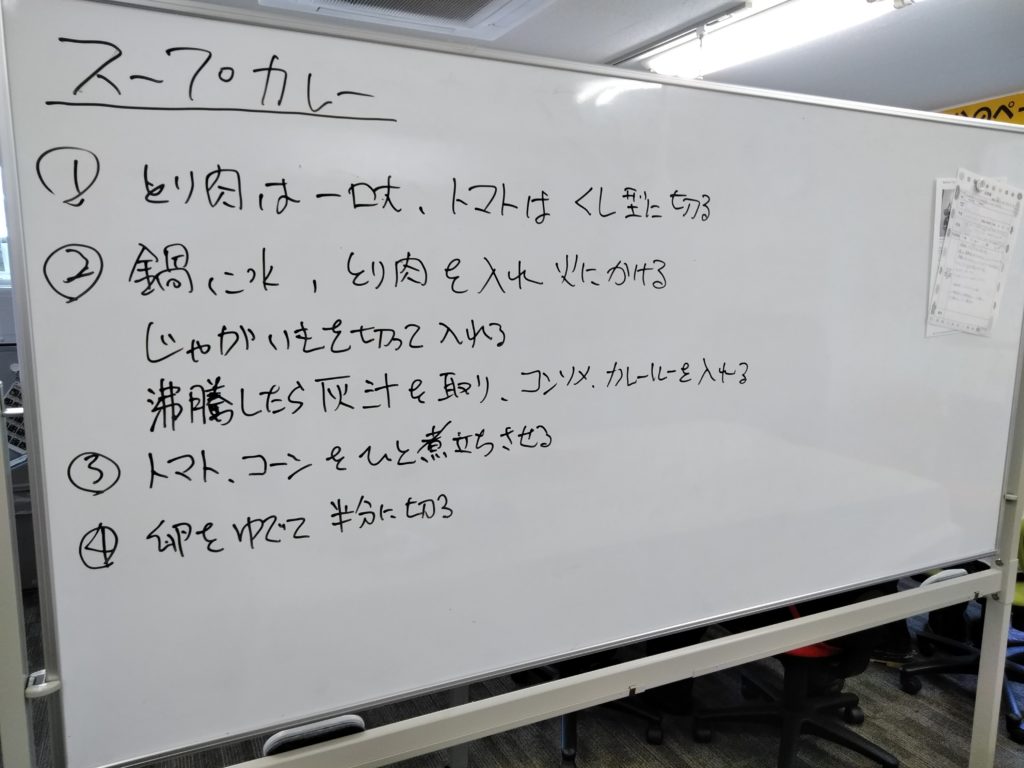 スープカレー
① とり肉は一口大、トマトはくし型に切る
② 鍋に水、とり肉を入れ火にかける
じゃがいもを切って入れる
沸騰したら灰汁を取り、コンソメ、カレールーを入れる
③ トマト、コーンをひと煮立ちさせる
④ 卵をゆでて半分に切る